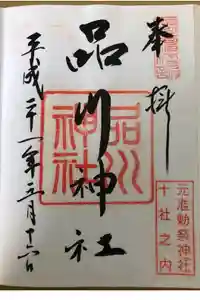 奉拝
元准勅祭神社
十社之内
品川神社
品川神社
平成二十一年三月十六日